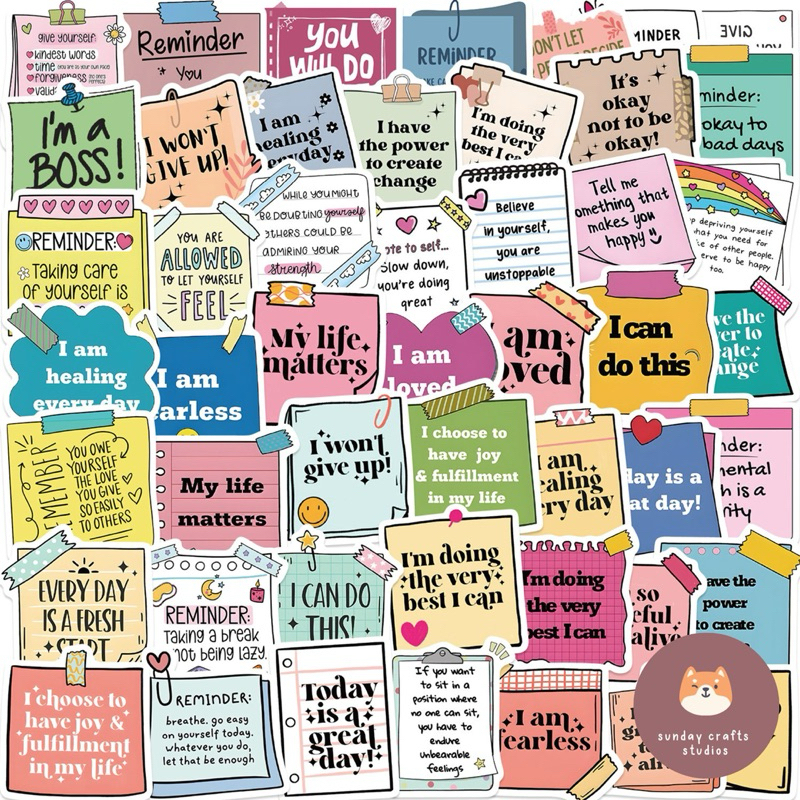 give yourself:
kindest words
time
forgiveness
Reminder
You
YOU
WILL DO
REMINDER
DON'T LET
MINDER
GIVE
I'm a
BOSS!
I WON'T
GIVE UP!
I am
healing
everyday
I have
the power
to create
change
I'm doing
the very
best I can
It's
okay
not to be
okay!
minder:
okay to
bad days
REMINDER:
Taking care
of yourself is
YOU ARE
ALLOWED
TO LET YOURSELF
FEEL
WHILE YOU MIGHT
BE DOUBTING yourself
OTHERS COULD BE
ADMIRING YOUR
strength
ote to self...
Slow down,
you're doing
great
Believe
in yourself,
you are
unstoppable
Tell me
omething that
makes you
happy
p depriving yourself
what you need for
e of other people.
erve to be happy
too.
I am
healing
every day
I am
arless
My life
matters
I am
loved
am
oved
I can
do this
ve the
er to
ate
nge
REMEMBER
YOU OWE
YOURSELF
THE LOVE
YOU GIVE
SO EASILY
TO OTHERS
My life
matters
I won't
give up!
I choose to
have joy
& fulfillment
in my life
I am
ealing
ery day
day is a
at day!
nder:
mental
h is a
rity
EVERY DAY
IS A FRESH
START
REMINDER:
Taking a break
not being lazy.
I CAN DO
THIS!
I'm doing
the very
best I can
I'm doing
the very
best I can
so
eful
alive
ave the
power
to create
I choose to
have joy &
fulfillment
in my life
REMINDER:
breathe. go easy
on yourself today.
whatever you do,
let that be enough
Today
is a
great
day!
If you want
to sit in a
position where
no one can sit,
you have to
endure
unbearable
feelings
I am
fearless
sunday crafts
studios